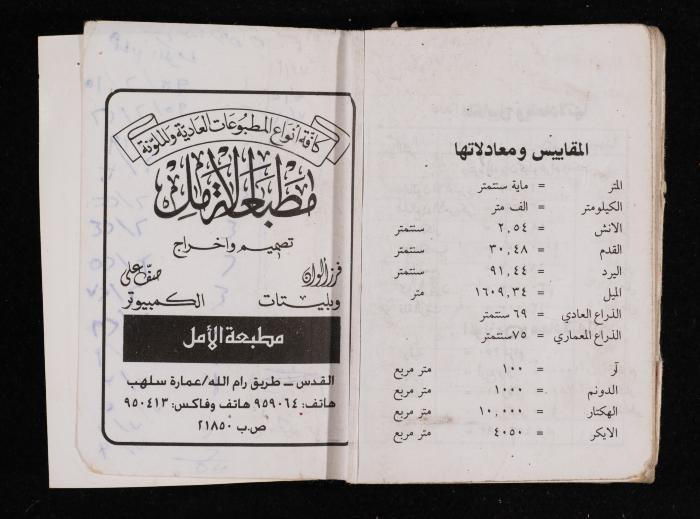 المقاييس ومعادلاتها
المتر = ماية سنتمتر
الكيلومتر = الف متر
الانش = ٢,٥٤ سنتمتر
القدم = ٣٠,٤٨ سنتمتر
اليرد = ٩١,٤٤ سنتمتر
الميل = ١٦٠٩,٣٤ متر
الذراع العادي = ٦٩ سنتمتر
الذراع المعماري = ٧٥سنتمتر
آر = ١٠٠ متر مربع
الدونم = ١٠٠٠ متر مربع
الهكتار = ١٠,٠٠٠ متر مربع
الايكر = ٤٠٥٠ متر مربع
كافة أنواع المطبوعات العادية والملونة
مطبعة الأمل
تصميم واخراج
فرز الوان صف على
وبليتات الكمبيوتر
مطبعة الأمل
القدس ــ طريق رام الله/عمارة سلهب
هاتف: ٩٥٩٠٦٤ هاتف وفاكس: ٩٥٠٤١٣
ص.ب ٢١٨٥٠